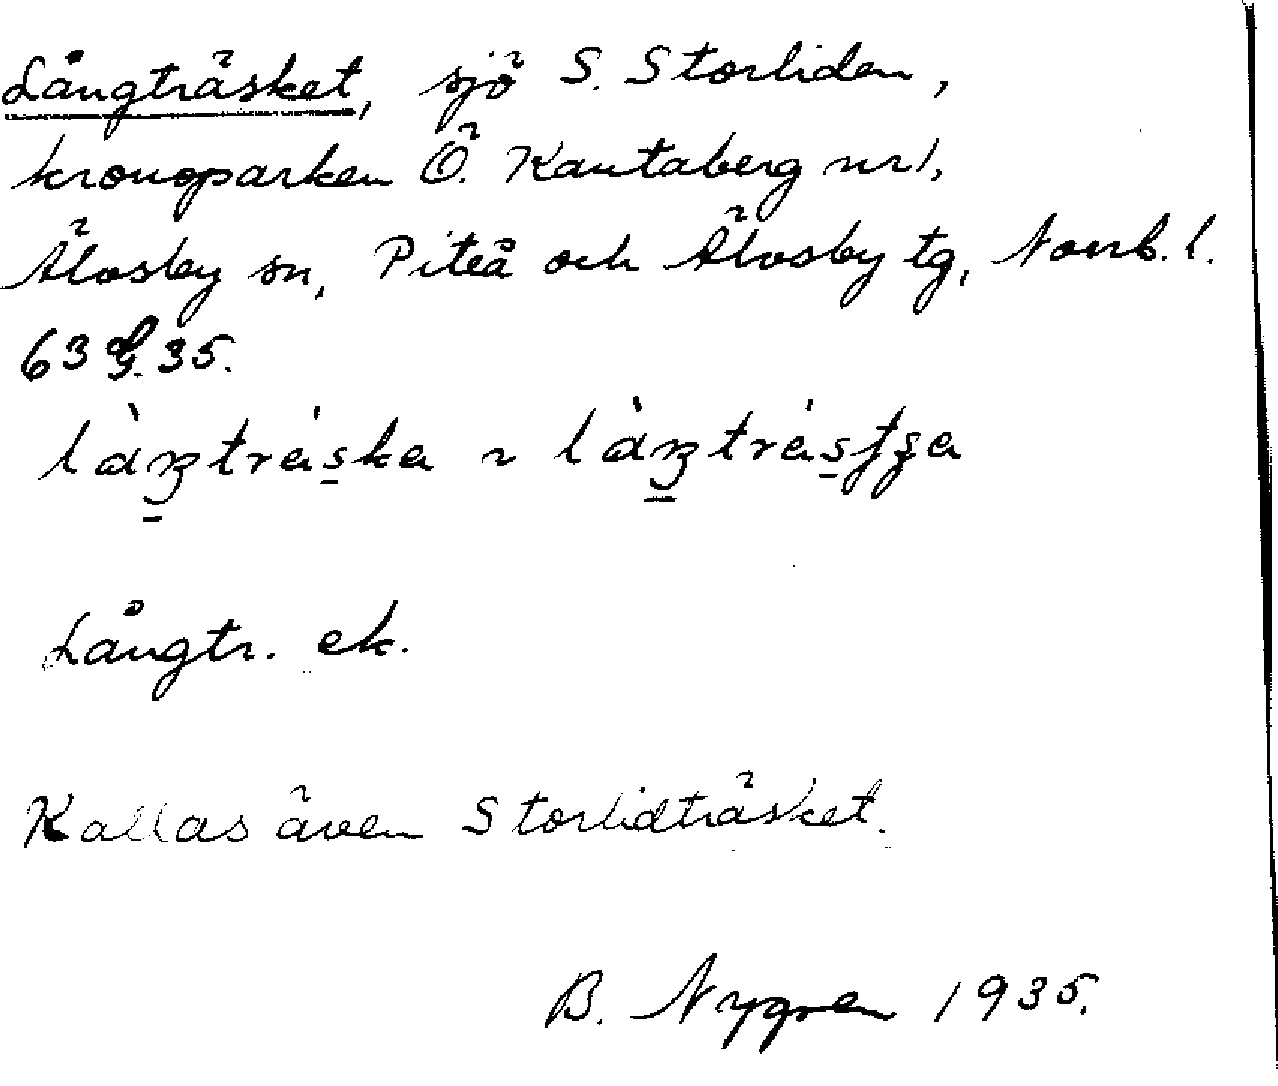 Långträsket, sjö S. Storliden,
kronoparken Ö. Kantaberg nr 1,
Älvsby sn, Piteå och Älvsby tg, Norrb. l.
63 35.
Långtr. ek.
Kallas även Storlidträsket.
B. Nygren 1935.